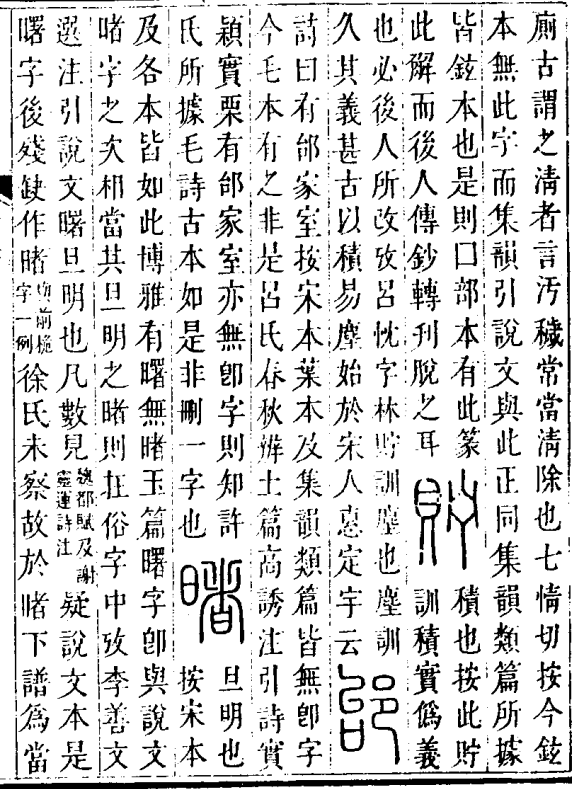 廁古謂之清者言汚穢常當清除也七情切按今鉉
本無此字而集韻引說文與此正同集韻類篇所據
皆鉉本也是則囗部本有此篆
此解而後人傳鈔轉刋脫之耳
貯
積也按此貯
訓積實僞義
也必後人所改攷呂忱字林貯訓塵也塵訓
久其義甚古以積易塵始於宋人惠定宇云
邰
詩曰有邰家室按宋本葉本及集韻類篇皆無卽字
今毛本有之非是呂氏春秋辨土篇高誘注引詩實
穎實栗有邰家室亦無卽字則知許
氏所據毛詩古本如是非刪一字也
暏
旦明也
按宋本
及各本皆如此博雅有曙無暏玉篇曙字卽與說文
暏字之次相當其旦明之暏則在俗字中攷李善文
選注引說文曙旦明也凡數見魏都賦及謝靈運詩注疑說文本是
曙字後殘缺作暏前字一例徐氏未察故於暏下譜爲當